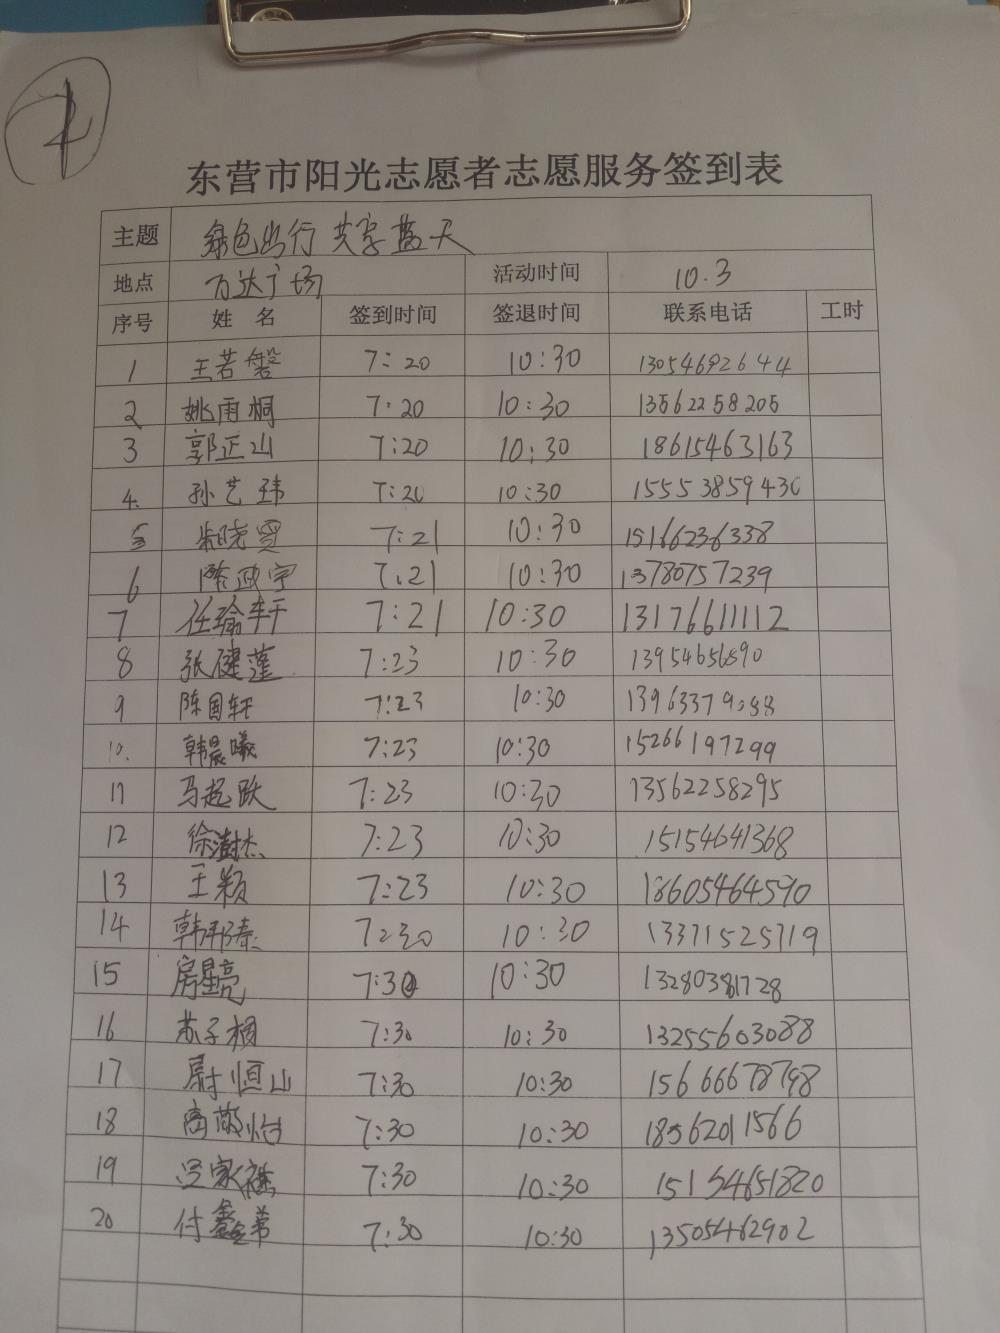 东营市阳光志愿者志愿服务签到表
主题 绿色出行 共享蓝天
地点 万达广场 活动时间 10.3
序号 姓名 签到时间 签退时间 联系电话 工时
1 王若磐 7:20 10:30 13054692644
2 姚雨桐 7:20 10:30 13562258205
3 郭正山 7:20 10:30 18615463163
4. 孙艺玮 7:20 10:30 15553859430
5 朱晓贤 7:21 10:30 15166236338
6 陈政宇 7:21 10:30 13780757239
7 任瑜轩 7:21 10:30 13176611112
8 张健蓬 7:23 10:30 13954656890
9 陈国轩 7:23 10:30 13963379088
10. 韩晨曦 7:23 10:30 15266197299
11 马起跃 7:23 10:30 13562258295
12 徐澍杰 7:23 10:30 15154641368
13 王颖 7:23 10:30 18605464590
14 韩邦秦 7:30 10:30 13371525719
15 房星亮 7:30 10:30 13280381728
16 苏子桐 7:30 10:30 13255603088
17 尉恒山 7:30 10:30 15666678798
18 高敬怡 7:30 10:30 18562011566
19 家 7:30 10:30 15154651820
20 付鑫 7:30 10:30 13505462902